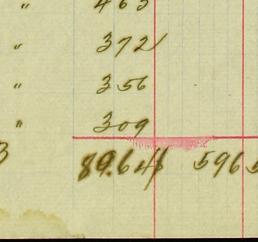 " 463
" 372
" 356
" 309
3 89.64 5965